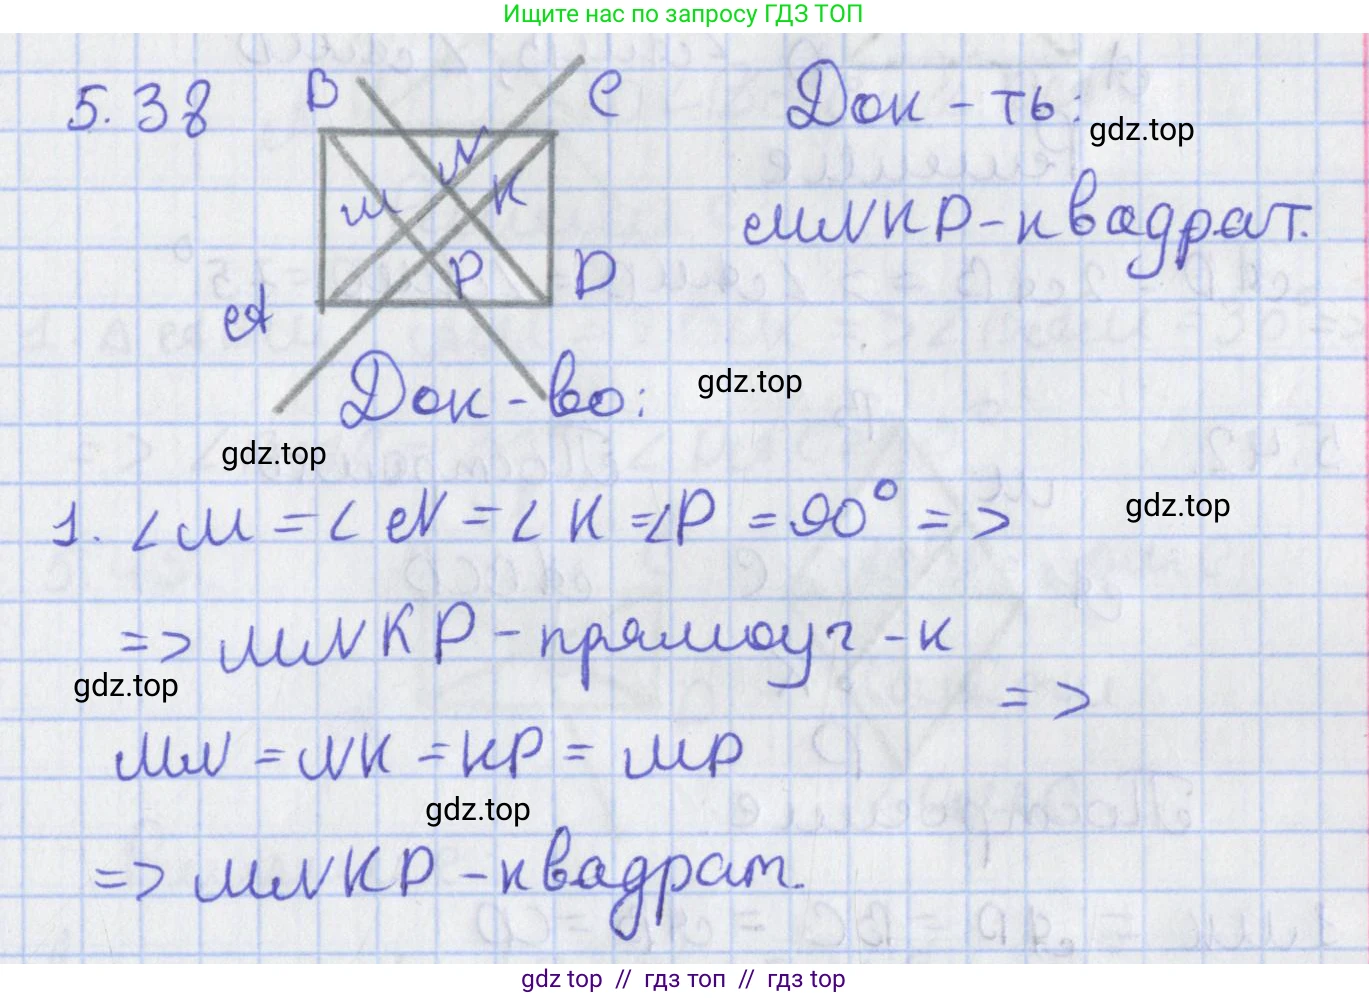 Ищите нас по запросу ГДЗ ТОП
5.38
B
C
Док-ть:
gdz.top
N
M
K
MNKP-квадрат.
P
D
A
Док-во:
gdz.top
gdz.top
1. ∠M = ∠N = ∠K = ∠P = 90° =>
gdz.top
=> MNKP - прямоуг-к
gdz.top
=>
MN = NK = KP = MP
gdz.top
=> MNKP - квадрат.
gdz.top // гдз топ // гдз top